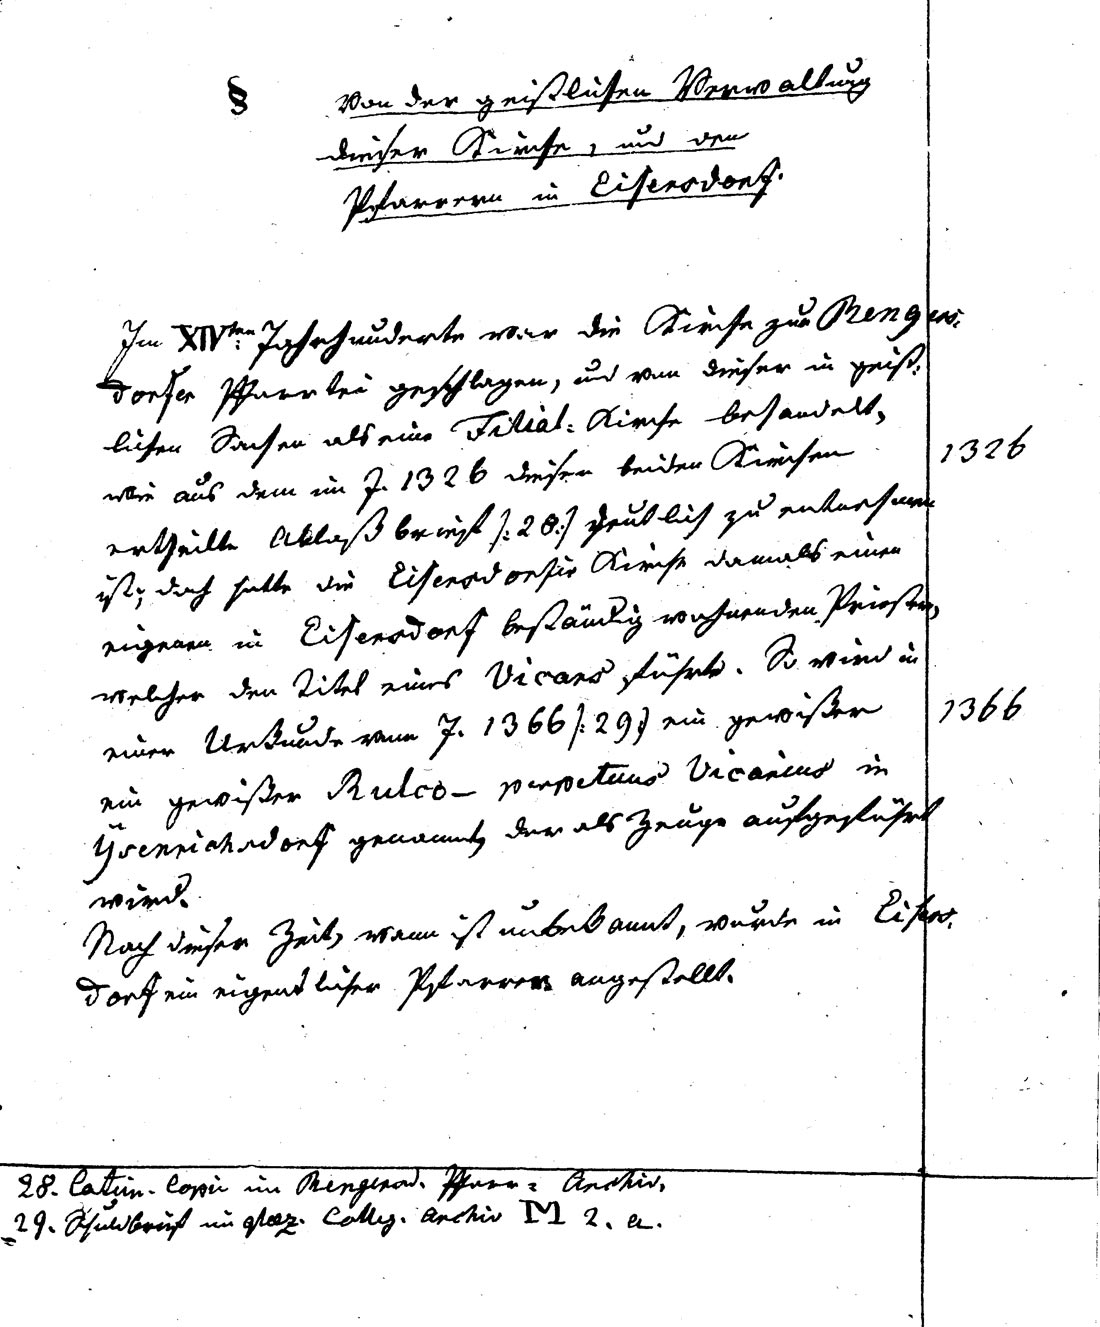 § Von der geistlichen Verwaltung
dieser Kirche, und den
Pfarrern in Eisersdorf.
Im XIVten: Jahrhunderte war die Kirche zur Rengers:
dorfer Pfarrtei geschlagen, und von dieser in geist:
lichen Sachen als eine Filial: Kirche behandelt,
wie aus dem im J. 1326 diesen beiden Kirchen
1326
ertheilte Ablaßbrief /:28:/ deutlich zu entnehmen
ist; doch hatte die Eisersdorfer Kirche damals einen
eigenen in Eisersdorf beständig wohnenden Priester,
welcher den Titel eines Vicars führte. So wird in
einer Urkunde vom J. 1366 /:29:/ ein gewißer
1366
ein gewißer Rulco – perpetuus Vicarius in
Ysenrichsdorf genannt, der als Zeuge aufgeführt
wird.
Nach dieser Zeit, wann ist unbekannt, wurde in Eisers:
dorf ein eigentlicher Pfarrer angestellt.
28. Latein. Copie im Rengersd. Pfarr: Archiv.
29. Schuldbrief im glaz. Colleg. Archiv M 2. a.